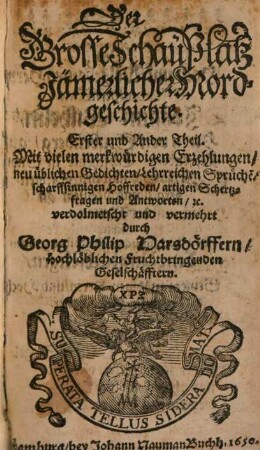 Der
Grosse Schauplatz
Jämerlicher Mord-
geschichte.
Erster und Ander Theil.
Mit vielen merkwürdigen Erzehlungen/
neu üblichen Gedichten/Lehrreichen Sprüchē/
scharffsinnigen Hoffreden/ artigen Schertz-
fragen und Antworten/ ꝛc.
verdolmetscht und vermehrt
durch
Georg Philip Harsdörffern/
Hochlöblichen Fruchtbringenden
Geselschäfftern.
SUPERATA TELLUS SIDERA DONAT
Hamburg/bey Johann Nauman Buchh. 1650.